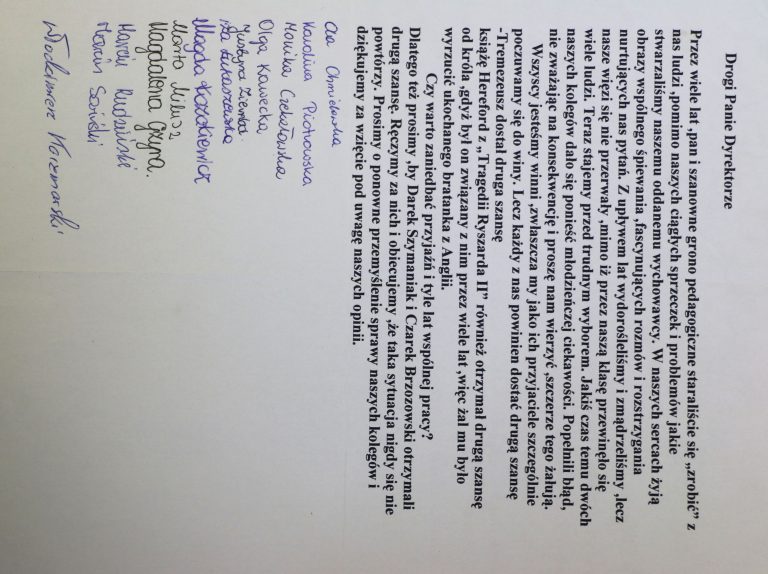 Drogi Panie Dyrektorze
Przez wiele lat ,pan i szanowne grono pedagogiczne staraliście się „zrobić” z
nas ludzi ,pomimo naszych ciągłych sprzeczek i problemów jakie
stwarzaliśmy naszemu oddanemu wychowawcy. W naszych sercach żyją
obrazy wspólnego śpiewania ,fascynujących rozmów i rozstrzygania
nurtujących nas pytań. Z upływem lat wydorośleliśmy i zmądrzeliśmy ,lecz
nasze więzi się nie przerwały ,mimo iż przez naszą klasę przewinęło się
wiele ludzi. Teraz stajemy przed trudnym wyborem. Jakiś czas temu dwóch
naszych kolegów dało się ponieść młodzieńczej ciekawości. Popełnili błąd,
nie zważając na konsekwencję i proszę nam wierzyć ,szczerze tego żałują.
Wszyscy jesteśmy winni ,zwłaszcza my jako ich przyjaciele szczególnie
poczuwamy się do winy. Lecz każdy z nas powinien dostać drugą szansę
-Tremezeusz dostał druga szansę
książę Hereford z „Tragedii Ryszarda II” również otrzymał drugą szansę
od króla ,gdyż był on związany z nim przez wiele lat ,więc żal mu było
wyrzucić ukochanego bratanka z Anglii.
Czy warto zaniedbać przyjaźń i tyle lat wspólnej pracy?
Dlatego też prosimy ,by Darek Szymaniak i Czarek Brzozowski otrzymali
drugą szansę. Ręczymy za nich i obiecujemy ,że taka sytuacja nigdy się nie
powtórzy. Prosimy o ponowne przemyślenie sprawy naszych kolegów i
dziękujemy za wzięcie pod uwagę naszych opinii.
Karolina Piotrowska
Monika Czekałowska
Olga Kawecka
Justyna Ziemka
Iza Łukaszewska
Magda
Marta Miłusz
Magdalena Grypa.
Marcin Rudziński
Marcin
Włodzimierz Karzmarski